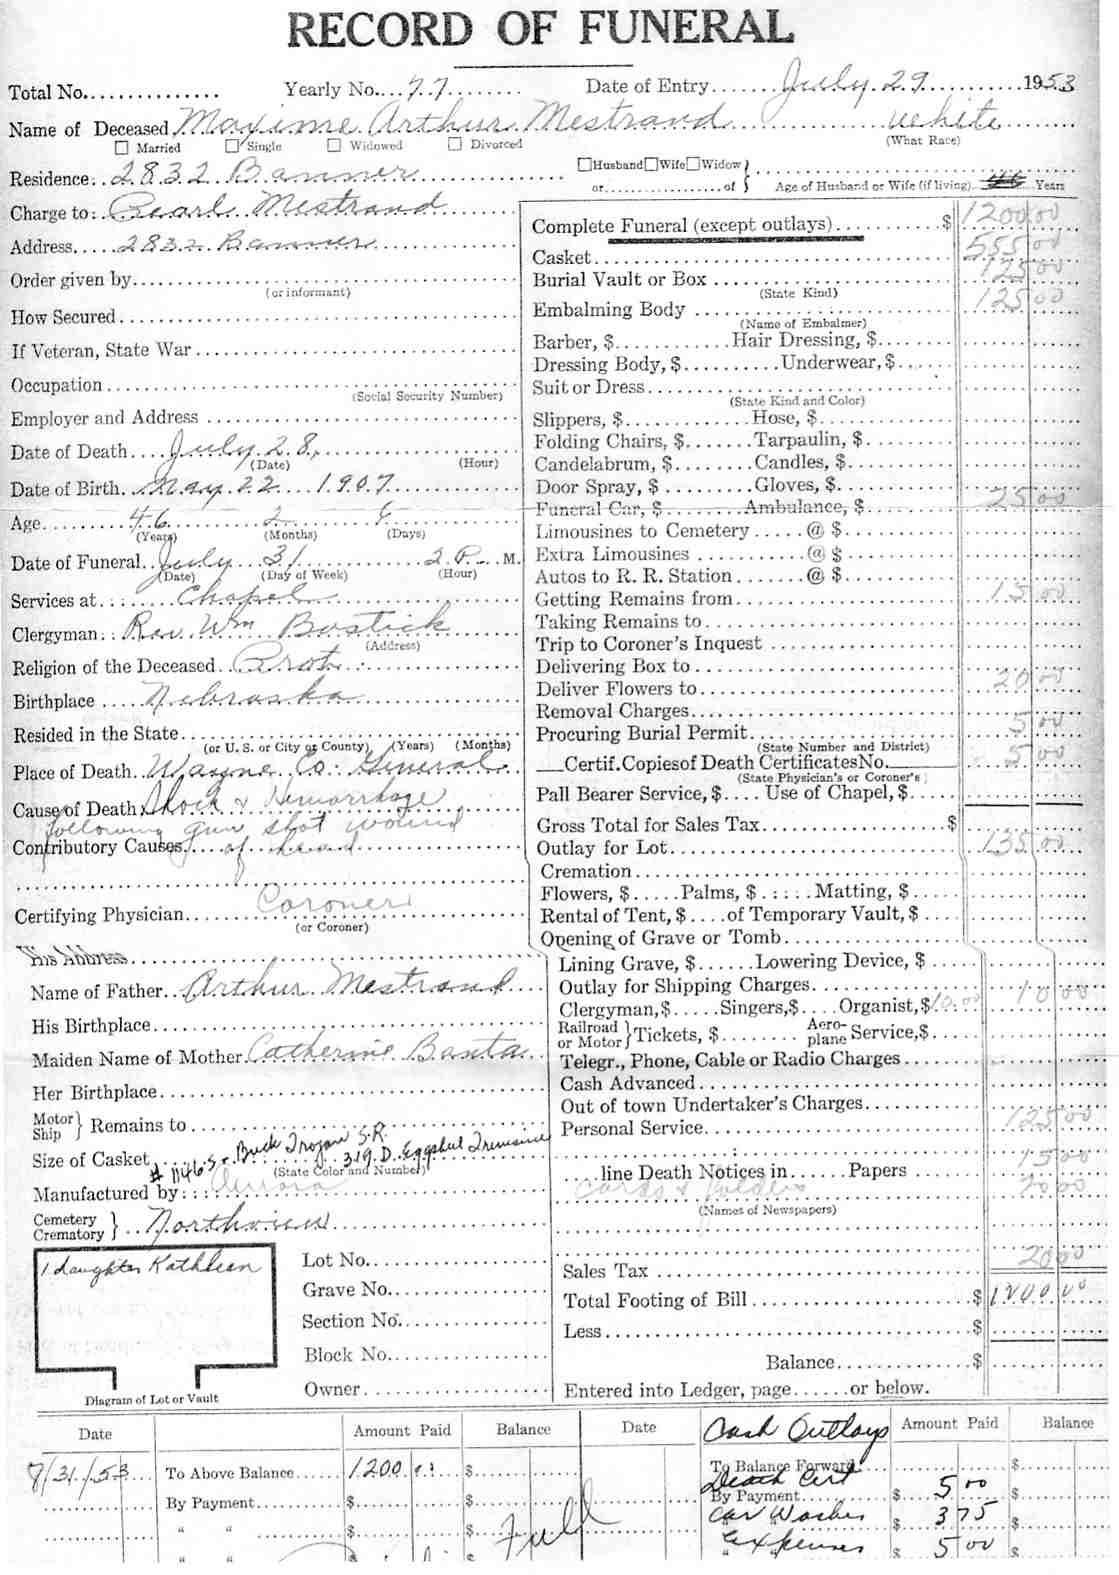 RECORD OF FUNERAL
Total No............... Yearly No....77......... Date of Entry.......July 29............1953
Name of Deceased Maxime Arthur Mestrand white
☐ Married ☐ Single ☐ Widowed ☐ Divorced (What Race)
Residence: 2832 Banner
☐Husband☐Wife☐Widow or....................of Age of Husband or Wife (if living) 46 Years
Charge to: Pearl Mestrand
Address.... 2832 Banner
Order given by
(or informant)
How Secured
If Veteran, State War
Occupation
(Social Security Number)
Employer and Address
Date of Death.... July 28,
(Date) (Hour)
Date of Birth. May 22 1907
Age 46 2 8
(Years) (Months) (Days)
Date of Funeral. July 31 2 P. M.
(Date) (Day of Week) (Hour)
Services at Chapel
Clergyman: Rev. Wm Bostick
(Address)
Religion of the Deceased Prot.
Birthplace Nebraska
Resided in the State
(or U. S. or City or County) (Years) (Months)
Place of Death. Wayne Co. General
Cause of Death Shock & Hemorrhage
following gun shot wound
Contributory Causes of head
Certifying Physician Coroner
(or Coroner)
His Address
Name of Father Arthur Mestrand
His Birthplace
Maiden Name of Mother Catherine Banta
Her Birthplace
Motor Ship } Remains to
Size of Casket # 1146 S. Buck Trojan S.R. 319 D. Eggshell
(State Color and Number)
Manufactured by: Aurora
Cemetery Crematory } Northview
1 daughter Kathleen
Diagram of Lot or Vault
Lot No.
Grave No.
Section No.
Block No.
Owner
Complete Funeral (except outlays) $ 1200 00
Casket 555 00
Burial Vault or Box 125 00
(State Kind)
Embalming Body 125 00
(Name of Embalmer)
Barber, $ Hair Dressing, $
Dressing Body, $ Underwear, $
Suit or Dress
(State Kind and Color)
Slippers, $ Hose, $
Folding Chairs, $ Tarpaulin, $
Candelabrum, $ Candles, $
Door Spray, $ Gloves, $
Funeral Car, $ Ambulance, $ 25 00
Limousines to Cemetery @ $
Extra Limousines @ $
Autos to R. R. Station @ $
Getting Remains from 15 00
Taking Remains to
Trip to Coroner's Inquest
Delivering Box to
Deliver Flowers to 20 00
Removal Charges
Procuring Burial Permit 5 00
(State Number and District)
Certif. Copies of Death Certificates No. 5 00
(State Physician's or Coroner's)
Pall Bearer Service, $.... Use of Chapel, $
Gross Total for Sales Tax $
Outlay for Lot 135 00
Cremation
Flowers, $ Palms, $ Matting, $
Rental of Tent, $ of Temporary Vault, $
Opening of Grave or Tomb
Lining Grave, $ Lowering Device, $
Outlay for Shipping Charges
Clergyman, $ Singers, $ Organist, $ 10.00 10 00
Railroad or Motor } Tickets, $ Aero-plane Service, $
Telegr., Phone, Cable or Radio Charges
Cash Advanced
Out of town Undertaker's Charges
Personal Service 125 00
15 00
line Death Notices in Papers
Cards & folders 20 00
(Names of Newspapers)
Sales Tax 20 00
Total Footing of Bill $ 1200 00
Less $
Balance $
Entered into Ledger, page or below.
Date Amount Paid Balance Date Cash Outlays Amount Paid Balance
8/31/53 To Above Balance 1200 $
To Balance Forward $
Death Cert
By Payment $ $ By Payment $ 5 00 $
" " $ $ Full Car Washes $ 3 75 $
" " $ Expenses $ 5 00 $